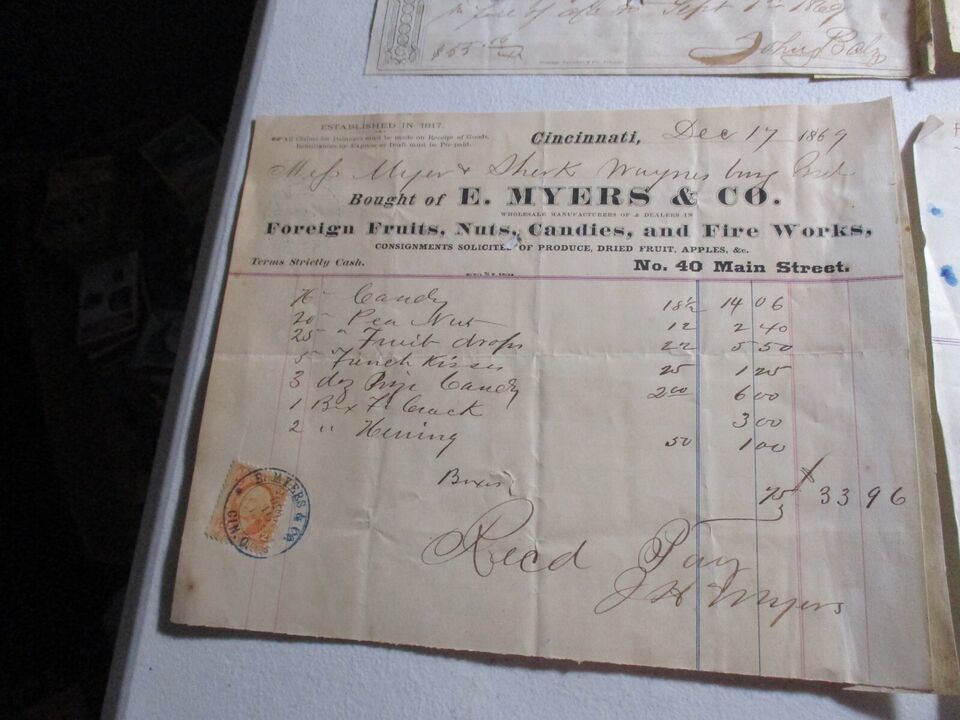 in full Sept 1st 1869
$55.10
John Bolz
ESTABLISHED IN 1817.
All Claims for Damages must be made on Receipt of Goods.
Remittances by Express or Draft must be Pre-paid.
Cincinnati, Dec 17 1869
Mess Myer & Sherk Waynesburg Ind
Bought of E. MYERS & CO.
WHOLESALE MANUFACTURERS OF & DEALERS IN
Foreign Fruits, Nuts, Candies, and Fire Works,
CONSIGNMENTS SOLICITED OF PRODUCE, DRIED FRUIT, APPLES, &c.
Terms Strictly Cash. No. 40 Main Street.
76 Candy 18½ 14 06
20 Pea Nut 12 2 40
25 " Fruit drops 22 5 50
5 French Kisses 25 1 25
3 doz Candy 2 00 6 00
1 Box F. Crack 3 00
2 " Herring 50 1 00
Boxes 75 33 96
E. MYERS & CO.
CIN. O.
Recd Pay
J H Myers